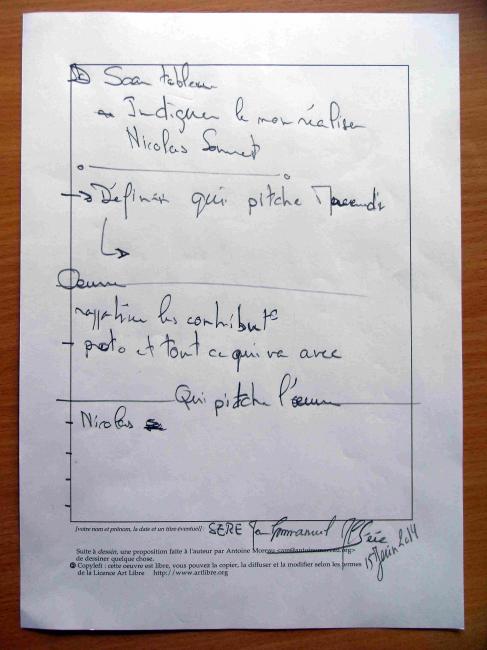 Scan tableau
Indiquer le non réaliser
Nicolas Sonnet
→ Définir qui pitche
Oeuvre
les contribut
- proto et tout ce qui va avec
Qui pitche l'œuvre
- Nicolas
[votre nom et prénom, la date et un titre éventuel] : SERE Jean Emmanuel
15 Juin 2014
Suite à dessin, une proposition faite à l'auteur par Antoine Moreau <am@antoinemoreau.org>
de dessiner quelque chose.
Copyleft : cette oeuvre est libre, vous pouvez la copier, la diffuser et la modifier selon les termes
de la Licence Art Libre http://www.artlibre.org